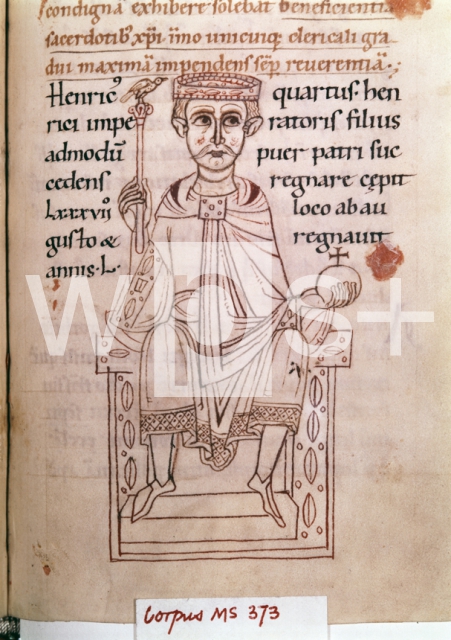 scondignā exhibere solebat beneficientiā
sacerdotibꝰ xp̄i īmo unicuiq; clericali gra
dui maximā impendens sēp reverentiā.;
Henricꝰ quartus. hen
rici imperatoris filius
admodū puer patri suc
cedens regnare cępit
lxxxvii loco ab au
gusto & regnavit
annis. L.
wps+
Corpus MS 373